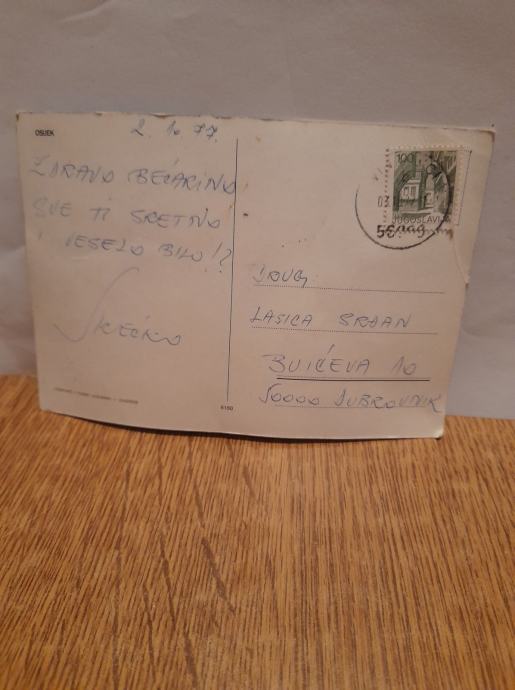 OSIJEK
2. 10 77.
ZDRAVO BEĆARINO
SVE TI SRETNO
I VESELO BILO!?
SREĆKO
6150
100
JUGOSLAVIJA
03.
DRUG
LASICA SRĐAN
BUIĆEVA 10
50000 DUBROVNIK